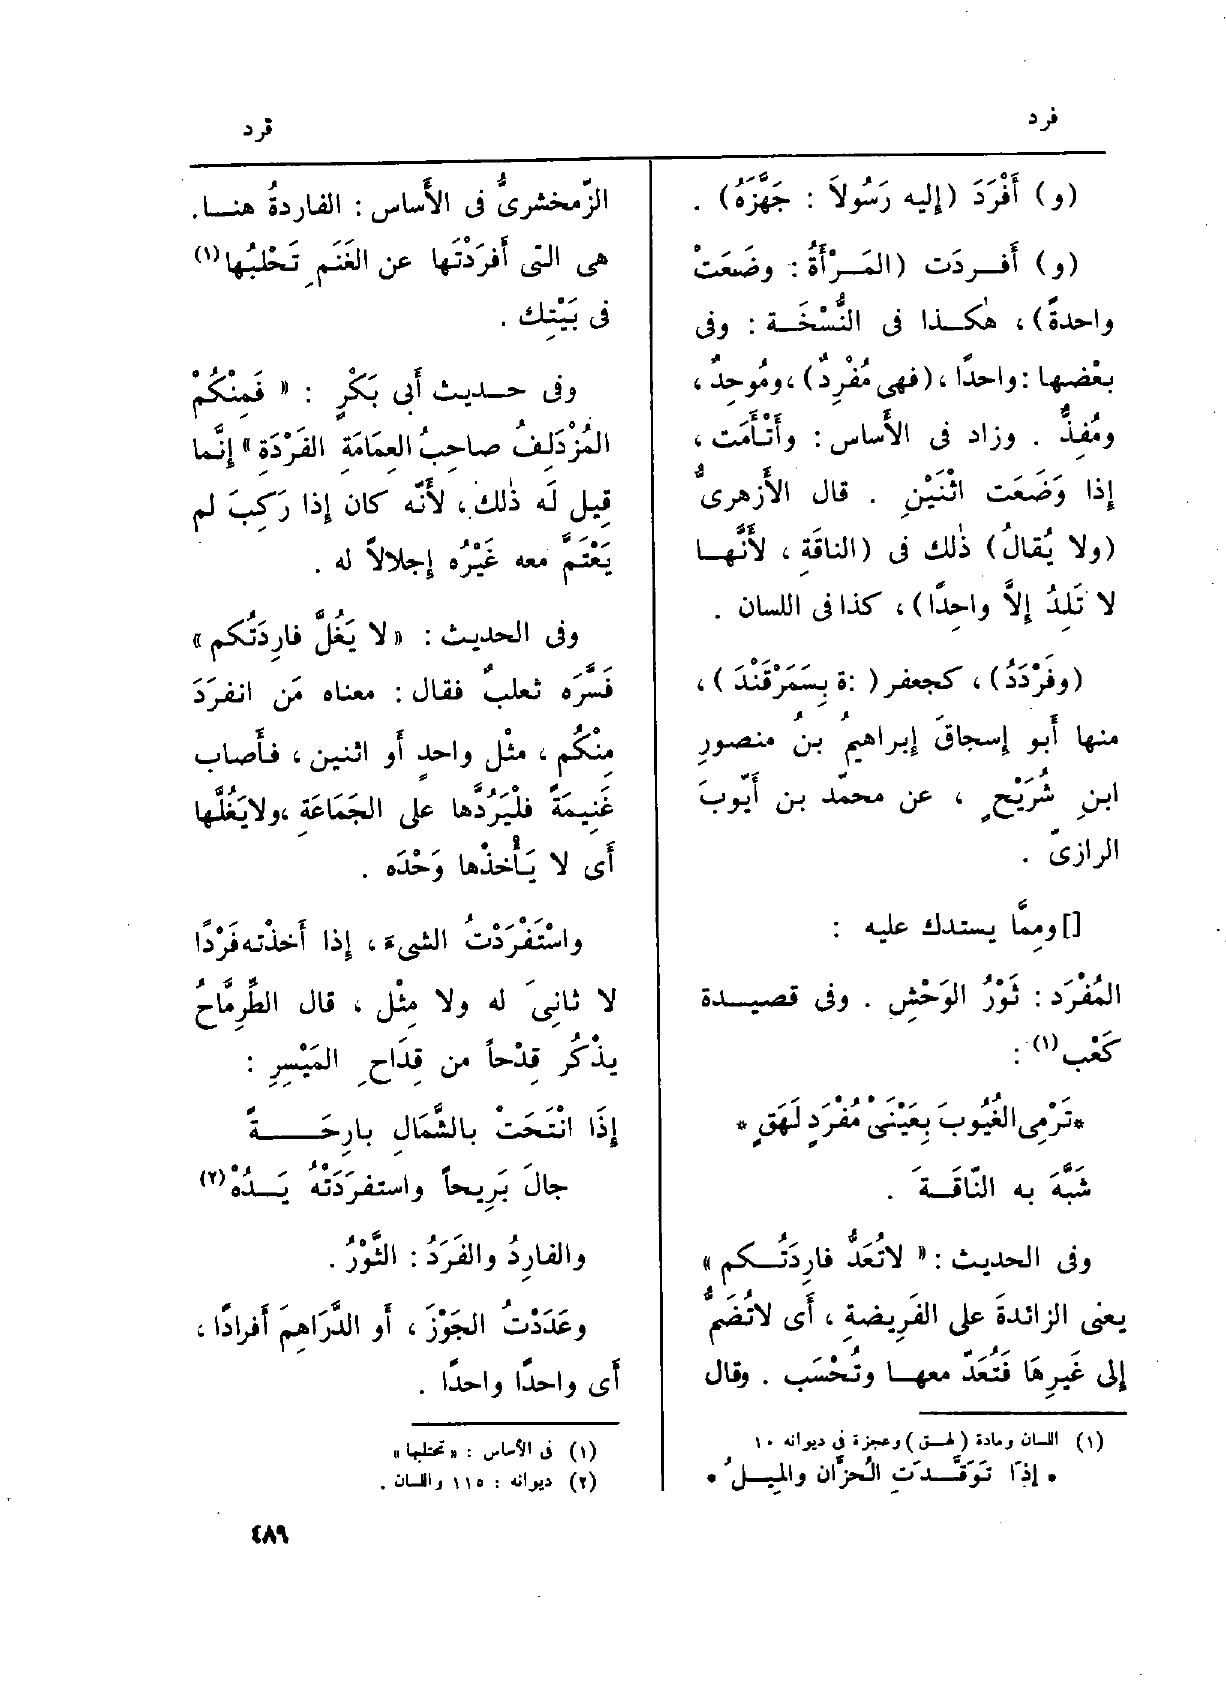 فرد
قرد
(و) أَفْرَدَ (إليه رَسُولاً : جَهَّزَهُ) .
(و) أَفـردَت (المَـرْأَةُ : وضَعَتْ
واحدةً) ، هٰكـذا فى النُّسْخَـة : وفى
بعْضها : واحدًا ، (فهى مُفْرِدٌ) ، ومُوحِدٌ ،
ومُفِذٌّ . وزاد فى الأَساس : وأَتْـأَمَت ،
إذا وَضَعَت اثْنَيْنِ . قال الأَزهرىُّ
(ولا يُقالُ) ذٰلك فى (الناقَةِ ، لأَنَّهـا
لا تَلِدُ إلاَّ واحِدًا) ، كذا فى اللسان .
(وفَرْدَدُ) ، كجعفر ( : ة بِسَمَرْقَنْدَ ) ،
منها أبو إسحاقَ إبراهيمُ بنُ منصورِ
ابنِ شُرَيْحٍ ، عن محمّد بن أَيّوبَ
الرازىّ .
[] ومِمَّا يستدك عليه :
المُفْرَد : ثَوْرُ الوَحْشِ . وفى قصيـدة
كَعْب (١) :
*تَرْمِى الغُيُوبَ بِعَيْنَىْ مُفْرَدٍ لَهَقٍ *
شَبَّهَ به النّاقَـةَ .
وفى الحديث : « لاتُعَدُّ فارِدَتُـكم »
يعنى الزائدةَ على الفَرِيضةِ ، أَى لاتُضَمُّ
إلى غَيرِهَا فَتُعَدّ معهـا وتُحْسَب . وقال
(١) اللسان ومادة ( لهـق ) وعجزة فى ديوانه ١٠
• إذَا تَوَقَّـدَتِ الْحُزَّان والمِيـلُ •
الزّمخشرىُّ فى الأَساس : الفاردةُ هنـا .
هى التى أَفرَدْتَها عن الغَنَمِ تَحْلبُها (١)
فى بَيْتِك .
وفى حـديث أَبى بَكْرٍ : « فَمِنْكُمْ
المُزْدَلِفُ صاحِبُ العِمَامَةِ الفَرْدَةِ » إنَّما
قِيل لَه ذٰلك ، لأَنّه كان إذا رَكِبَ لم
يَعْتَمَّ معه غَيْرُه إجلالاً له .
وفى الحديث : « لا يَغُلَّ فارِدَتُكم »
فَسَّرَه ثعلبٌ فقال : معناه مَن انفرَدَ
مِنْكُم ، مثْل واحدٍ أَو اثنين ، فـأَصاب
غَنِيمَةً فلْيَرُدَّها على الجَمَاعَةِ ، ولايَغُلَّها
أَى لا يَـأْخذْها وَحْدَه .
واسْتَفْرَدْتُ الشىءَ ، إذا أَخذْته فَرْدًا
لا ثانِىَ له ولا مِثْل ، قال الطِّرِمَّاحُ
يذْكُر قِدْحاً من قِدَاحِ المَيْسِرِ :
إذَا انْتَحَتْ بالشَّمَالِ بارِحَـــةً
جالَ بَرِيحاً واستفرَدَتْهُ يَـدُهْ (٢)
والفارِدُ والفَرَدُ : الثَّوْرُ .
وعَدَدْتُ الجَوْزَ ، أَو الدَّرَاهِمَ أَفرادًا ،
أَى واحدًا واحدًا .
(١) فى الأساس : « تحتلبها »
(٢) ديوانه : ١١٥ واللسان .
٤٨٩